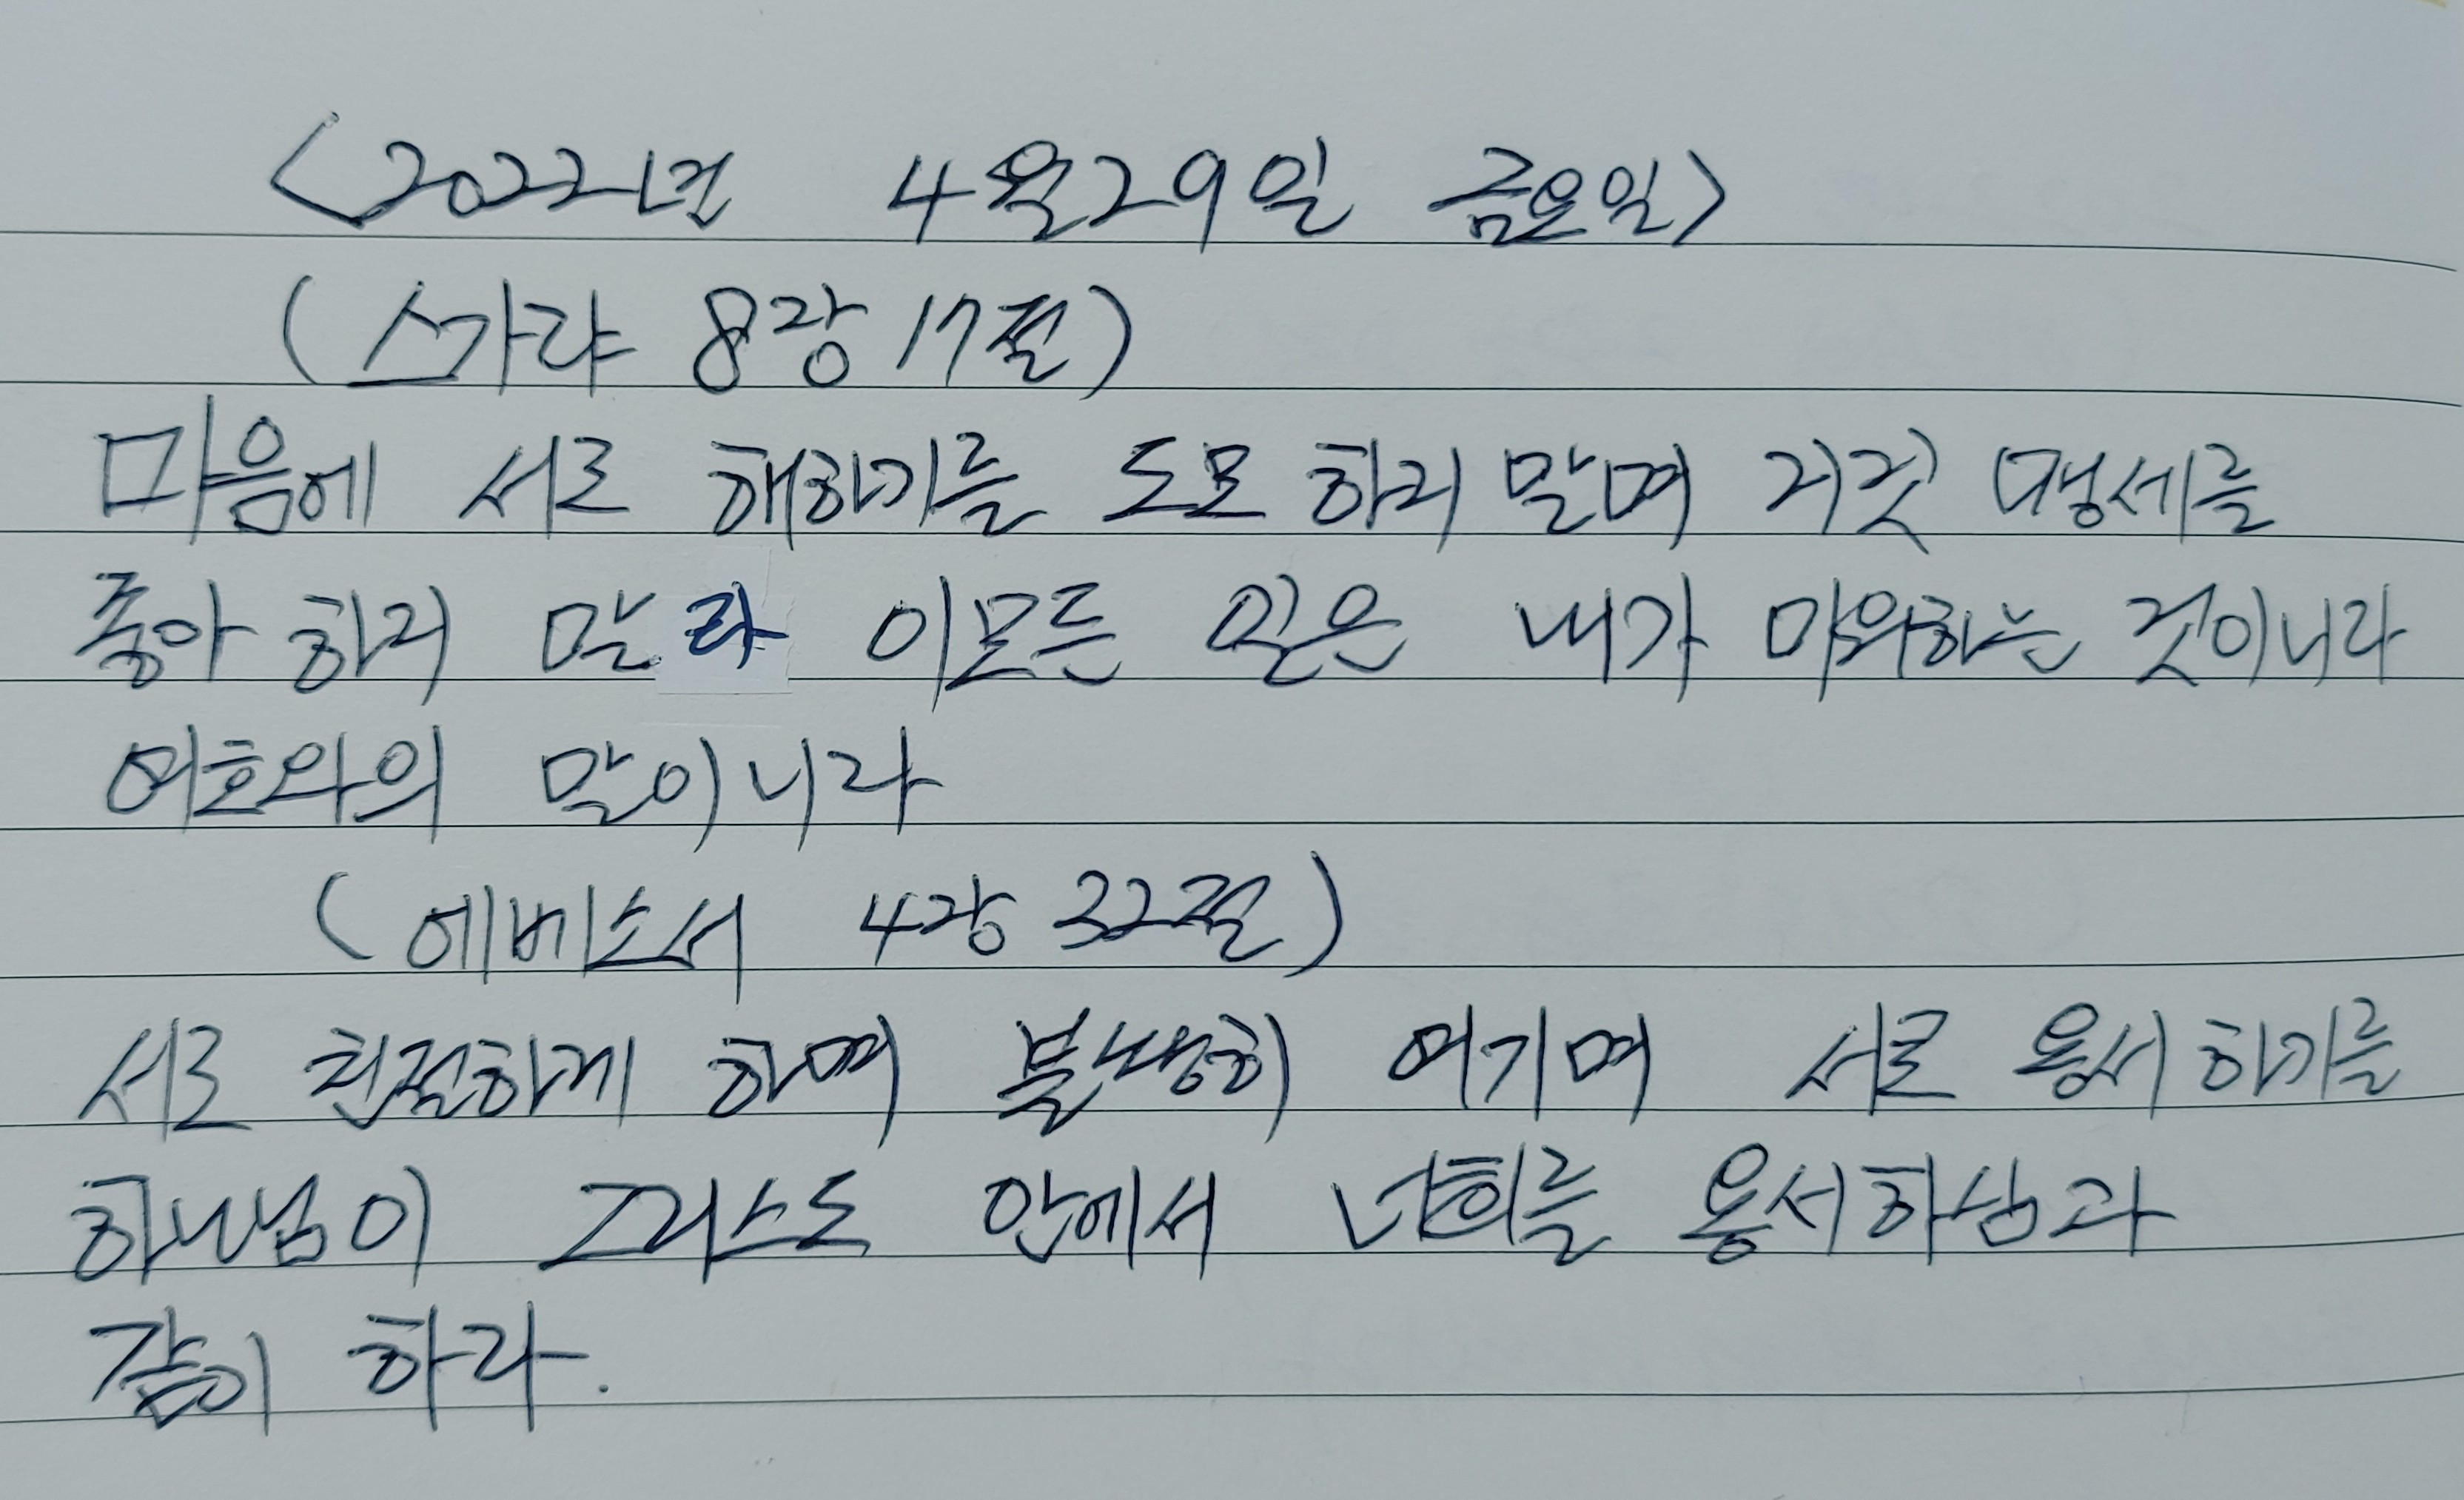 <2022년 4월29일 금요일>
(스가랴 8장 17절)
마음에 서로 해하기를 도모 하지 말며 거짓 맹세를
좋아 하지 말라 이모든 일은 내가 미워하는 것이니라
여호와의 말이니라
(에베소서 4장 32절)
서로 친절하게 하며 불쌍히 여기며 서로 용서 하기를
하나님이 그리스도 안에서 너희를 용서하심과
같이 하라.